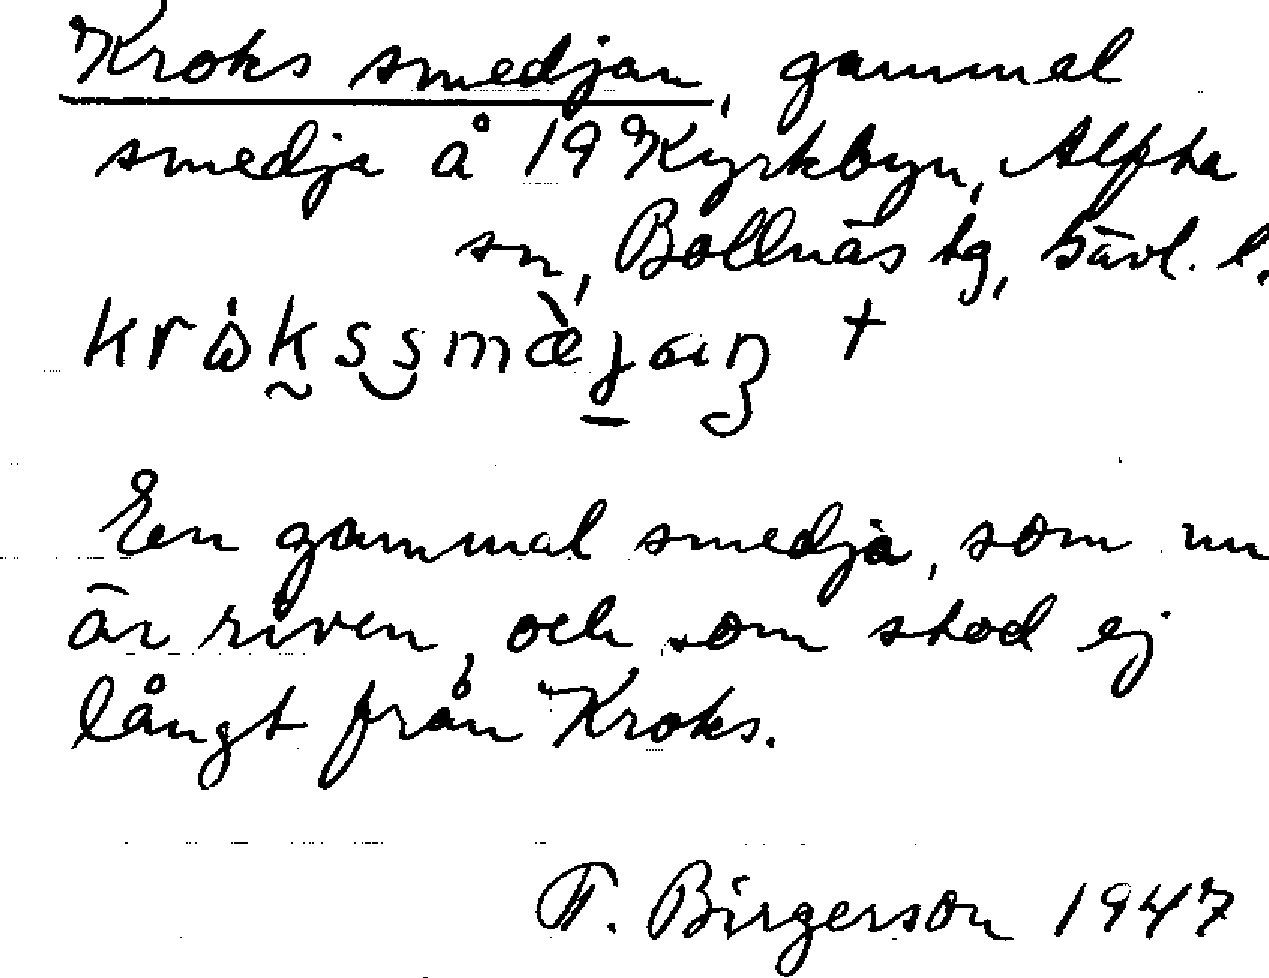 Kroks smedjan, gammal
smedja å 19 Kyrkbyn, Alfta
sn, Bollnäs tg, Gävl. l.
En gammal smedja, som nu
är riven, och som stod ej
långt från Kroks.
F. Birgerson 1947